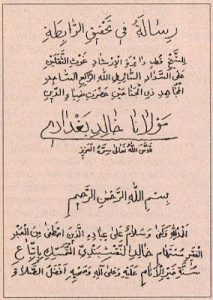 رسالة في تحقيق الرابطة
للشيخ قطب دائرة الإرشاد غوث الثقلين
على السداد السائر في الله الراكع الساجد
المجاهد ذي الجناحين حضرت ضياء الدين
مولانا خالد بغدادي
قدس الله تعالى سره العزيز
بسم الله الرحمن الرحيم
الحمد لله وكفى وسلام على عباده الذين اصطفى من العبد
الفقير مستهام خالد النقشبندي المتمسك باتباع
سنة خير الأنام عليه وعلى آله وصحبه أفضل الصلاة